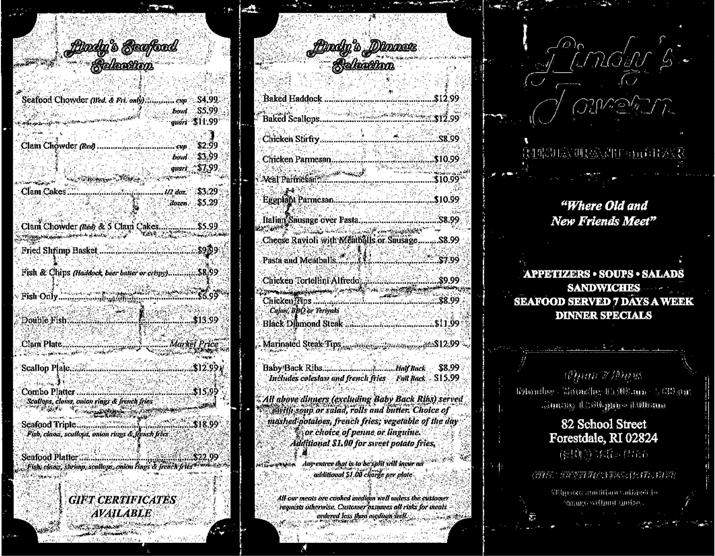 Lindy's Seafood
Selection
Seafood Chowder (Wed. & Fri. only) cup $4.99
bowl $5.99
quart $11.99
Clam Chowder (Red) cup $2.99
bowl $3.99
quart $7.99
Clam Cakes 1/2 doz. $3.29
dozen $5.29
Clam Chowder (Red) & 5 Clam Cakes $5.99
Fried Shrimp Basket $9.99
Fish & Chips (Haddock, beer batter or crispy) $8.99
Fish Only $6.99
Double Fish $13.99
Clam Plate Market Price
Scallop Plate $12.99
Combo Platter $15.99
Scallops, clams, onion rings & french fries
Seafood Triple $18.99
Fish, clams, scallops, onion rings & french fries
Seafood Platter $22.99
Fish, clams, shrimp, scallops, onion rings & french fries
GIFT CERTIFICATES
AVAILABLE
Lindy's Dinner
Selection
Baked Haddock $12.99
Baked Scallops $12.99
Chicken Stirfry $8.99
Chicken Parmesan $10.99
Veal Parmesan $10.99
Eggplant Parmesan $10.99
Italian Sausage over Pasta $8.99
Cheese Ravioli with Meatballs or Sausage $8.99
Pasta and Meatballs $7.99
Chicken Tortellini Alfredo $9.99
Chicken Tips $8.99
Cajun, BBQ or Teriyaki
Black Diamond Steak $11.99
Marinated Steak Tips $12.99
Baby Back Ribs Half Rack $8.99
Includes coleslaw and french fries Full Rack - $15.99
All above dinners (excluding Baby Back Ribs) served
with soup or salad, rolls and butter. Choice of
mashed potatoes, french fries; vegetable of the day
or choice of penne or linguine.
Additional $1.00 for sweet potato fries.
Any entree that is to be split will incur an
additional $1.00 charge per plate
All our meats are cooked medium well unless the customer
requests otherwise. Customer assumes all risks for meats
ordered less than medium well.
Lindy's
Tavern
RESTAURANT and BAR
"Where Old and
New Friends Meet"
APPETIZERS • SOUPS • SALADS
SANDWICHES
SEAFOOD SERVED 7 DAYS A WEEK
DINNER SPECIALS
Open 7 Days
82 School Street
Forestdale, RI 02824